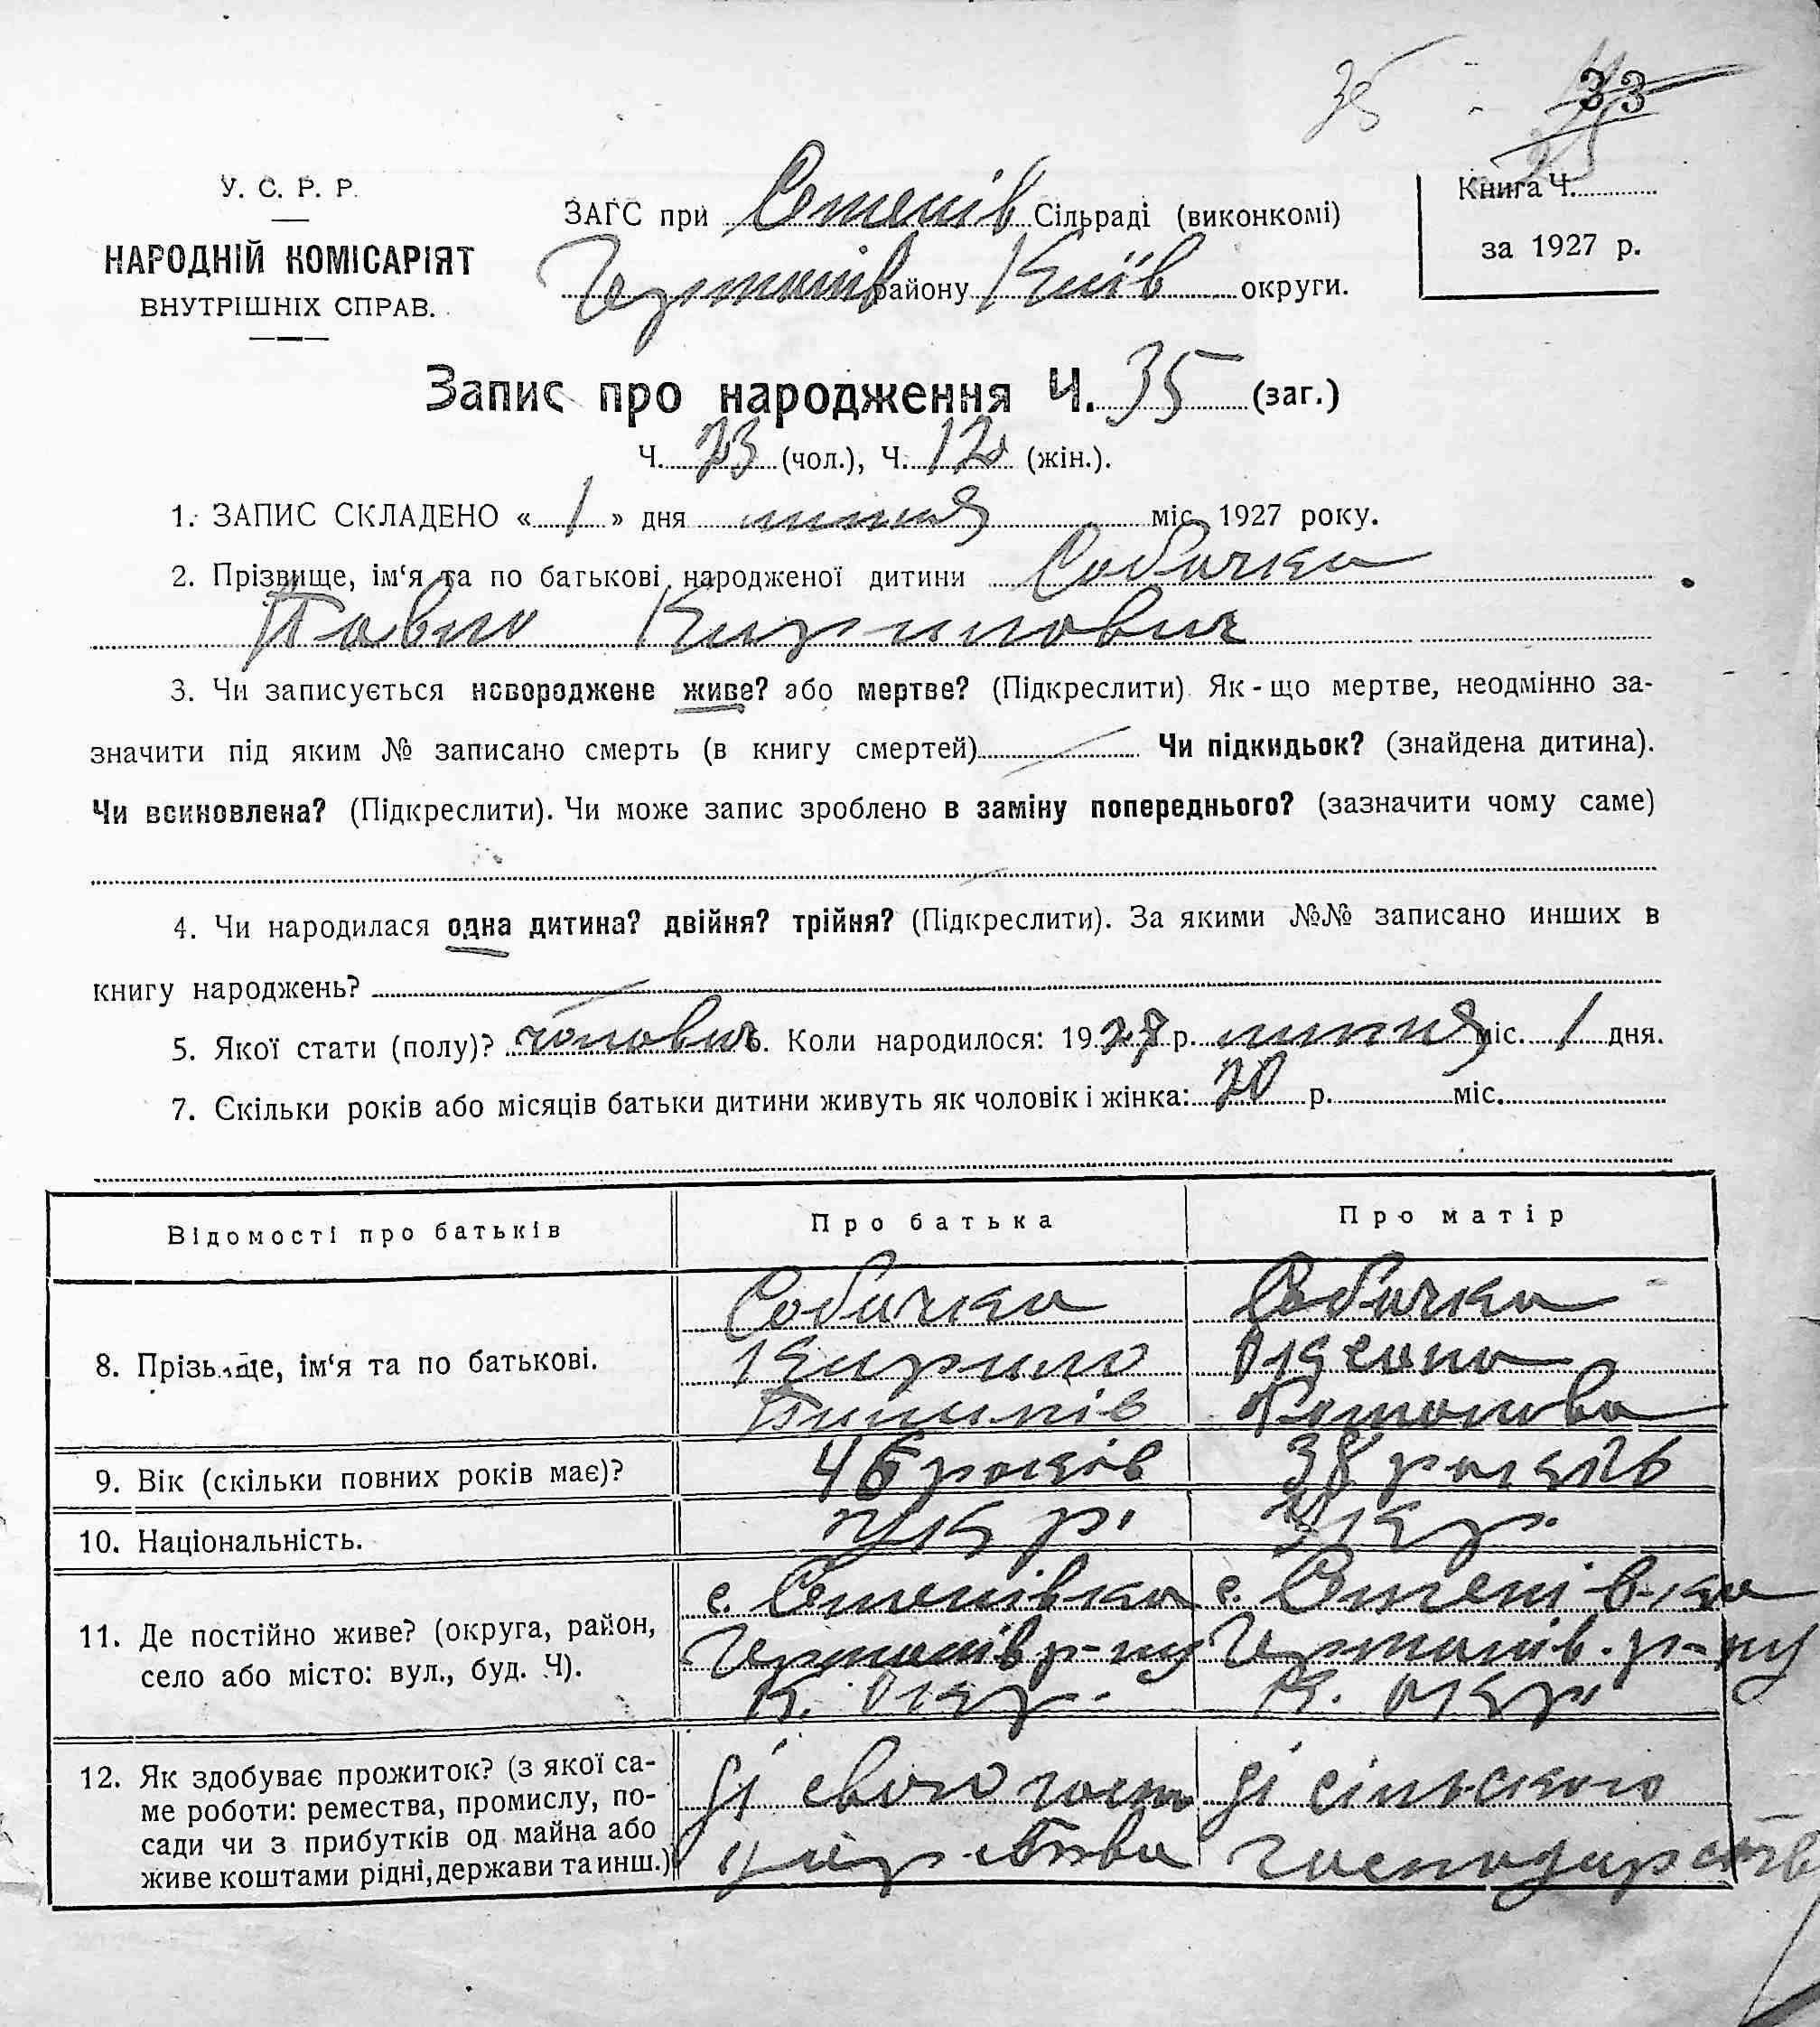 35 33
У. С. Р. Р.
НАРОДНІЙ КОМІСАРІЯТ
ВНУТРІШНІХ СПРАВ.
ЗАГС при Степнів Сільраді (виконкомі)
Германів району Київ округи.
Книга Ч.
за 1927 р.
Запис про народження Ч. 35 (заг.)
Ч. 23 (чол.), Ч. 12 (жін.).
1. ЗАПИС СКЛАДЕНО « 1 » дня липня міс. 1927 року.
2. Прізвище, ім‘я та по батькові народженої дитини Собачка
Павло Кирилович
3. Чи записується новороджене живе? або мертве? (Підкреслити) Як-що мертве, неодмінно за-
значити під яким № записано смерть (в книгу смертей) Чи підкидьок? (знайдена дитина).
Чи всиновлена? (Підкреслити). Чи може запис зроблено в заміну попереднього? (зазначити чому саме)
4. Чи народилася одна дитина? двійня? трійня? (Підкреслити). За якими №№ записано инших в
книгу народжень?
5. Якої стати (полу)? чоловіч. Коли народилося: 1927 р. липня міс. 1 дня.
7. Скільки років або місяців батьки дитини живуть як чоловік і жінка: 20 р. міс.
Відомості про батьків Про батька Про матір
8. Прізвище, ім‘я та по батькові. Собачка Собачка
Кирило Оксана
Пилипів
9. Вік (скільки повних років має)? 46 років 38 років
10. Національність. Укр. Укр.
11. Де постійно живе? (округа, район,
село або місто: вул., буд. Ч).
с. Степнівка с. Степнівка
Германів р-ну Германів. р-ну
К. окр. К. окр.
12. Як здобуває прожиток? (з якої са-
ме роботи: ремества, промислу, по-
сади чи з прибутків од майна або
живе коштами рідні, держави та инш.)
зі свого госп зі сільського
одарства господарств